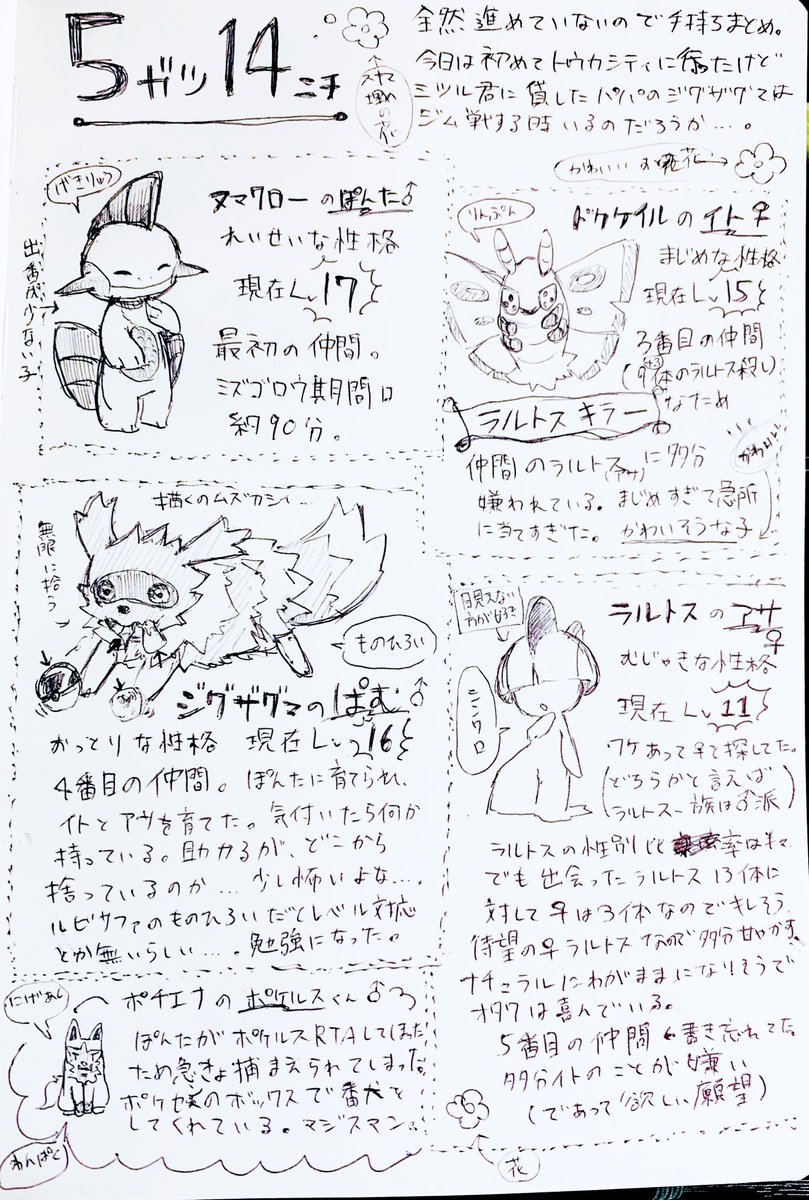 5ガツ14ニチ
スキマ埋めの花
全然進めていないので手持ちまとめ。
今日は初めてトウカシティに行ったけど
ミツル君に貸したパパのジグザグマは
ジム戦する時いるのだろうか…。
かわいいお花
げきりゅう
出番が少ない子
ヌマクローのぽんた♂
れいせいな性格
現在Lv17
最初の仲間。
ミズゴロウ期間は
約90分。
りんぷん
ドクケイルのイト♀
まじめな性格
現在Lv15
3番目の仲間
(9体のラルトス殺し)
なため
ラルトスキラー
かわいい
仲間のラルトス(アサ)に多分
嫌われている。まじめすぎて急所
に当てすぎた。かわいそうな子
描くのムズカシイ…
無限に拾う
ものひろい
ジグザグマのぱむ♂
おっとりな性格 現在Lv16
4番目の仲間。ぽんたに育てられ、
イトとアサを育てた。気付いたら何か
持っている。助かるが、どこから
拾っているのか…少し怖いよな…。
ルビサファのものひろいだとレベル対応
とか無いらしい…。勉強になった。
目見えない
わが好き
シンクロ
ラルトスのアサ♀
むじゃきな性格
現在Lv11
ワケあって♀で探してた。
(どちらかと言えば
ラルトス一族は♂派)
ラルトスの性別比率は半々
でも出会ったラルトス13体に
対して♀は3体なのでキレそう
待望の♀ラルトスなので多分甘やかす。
ナチュラルにわがままになりそうで
オタクは喜んでいる。
5番目の仲間←書き忘れてた
多分イトのことが嫌い
(であって欲しい願望)
花
にげあし
ポチエナのポケルスくん♂
ぽんたがポケルスRTAしてしまった
ため急きょ捕まえられてしまった。
ポケセンのボックスで番犬を
してくれている。マジスマン。
わんぱく